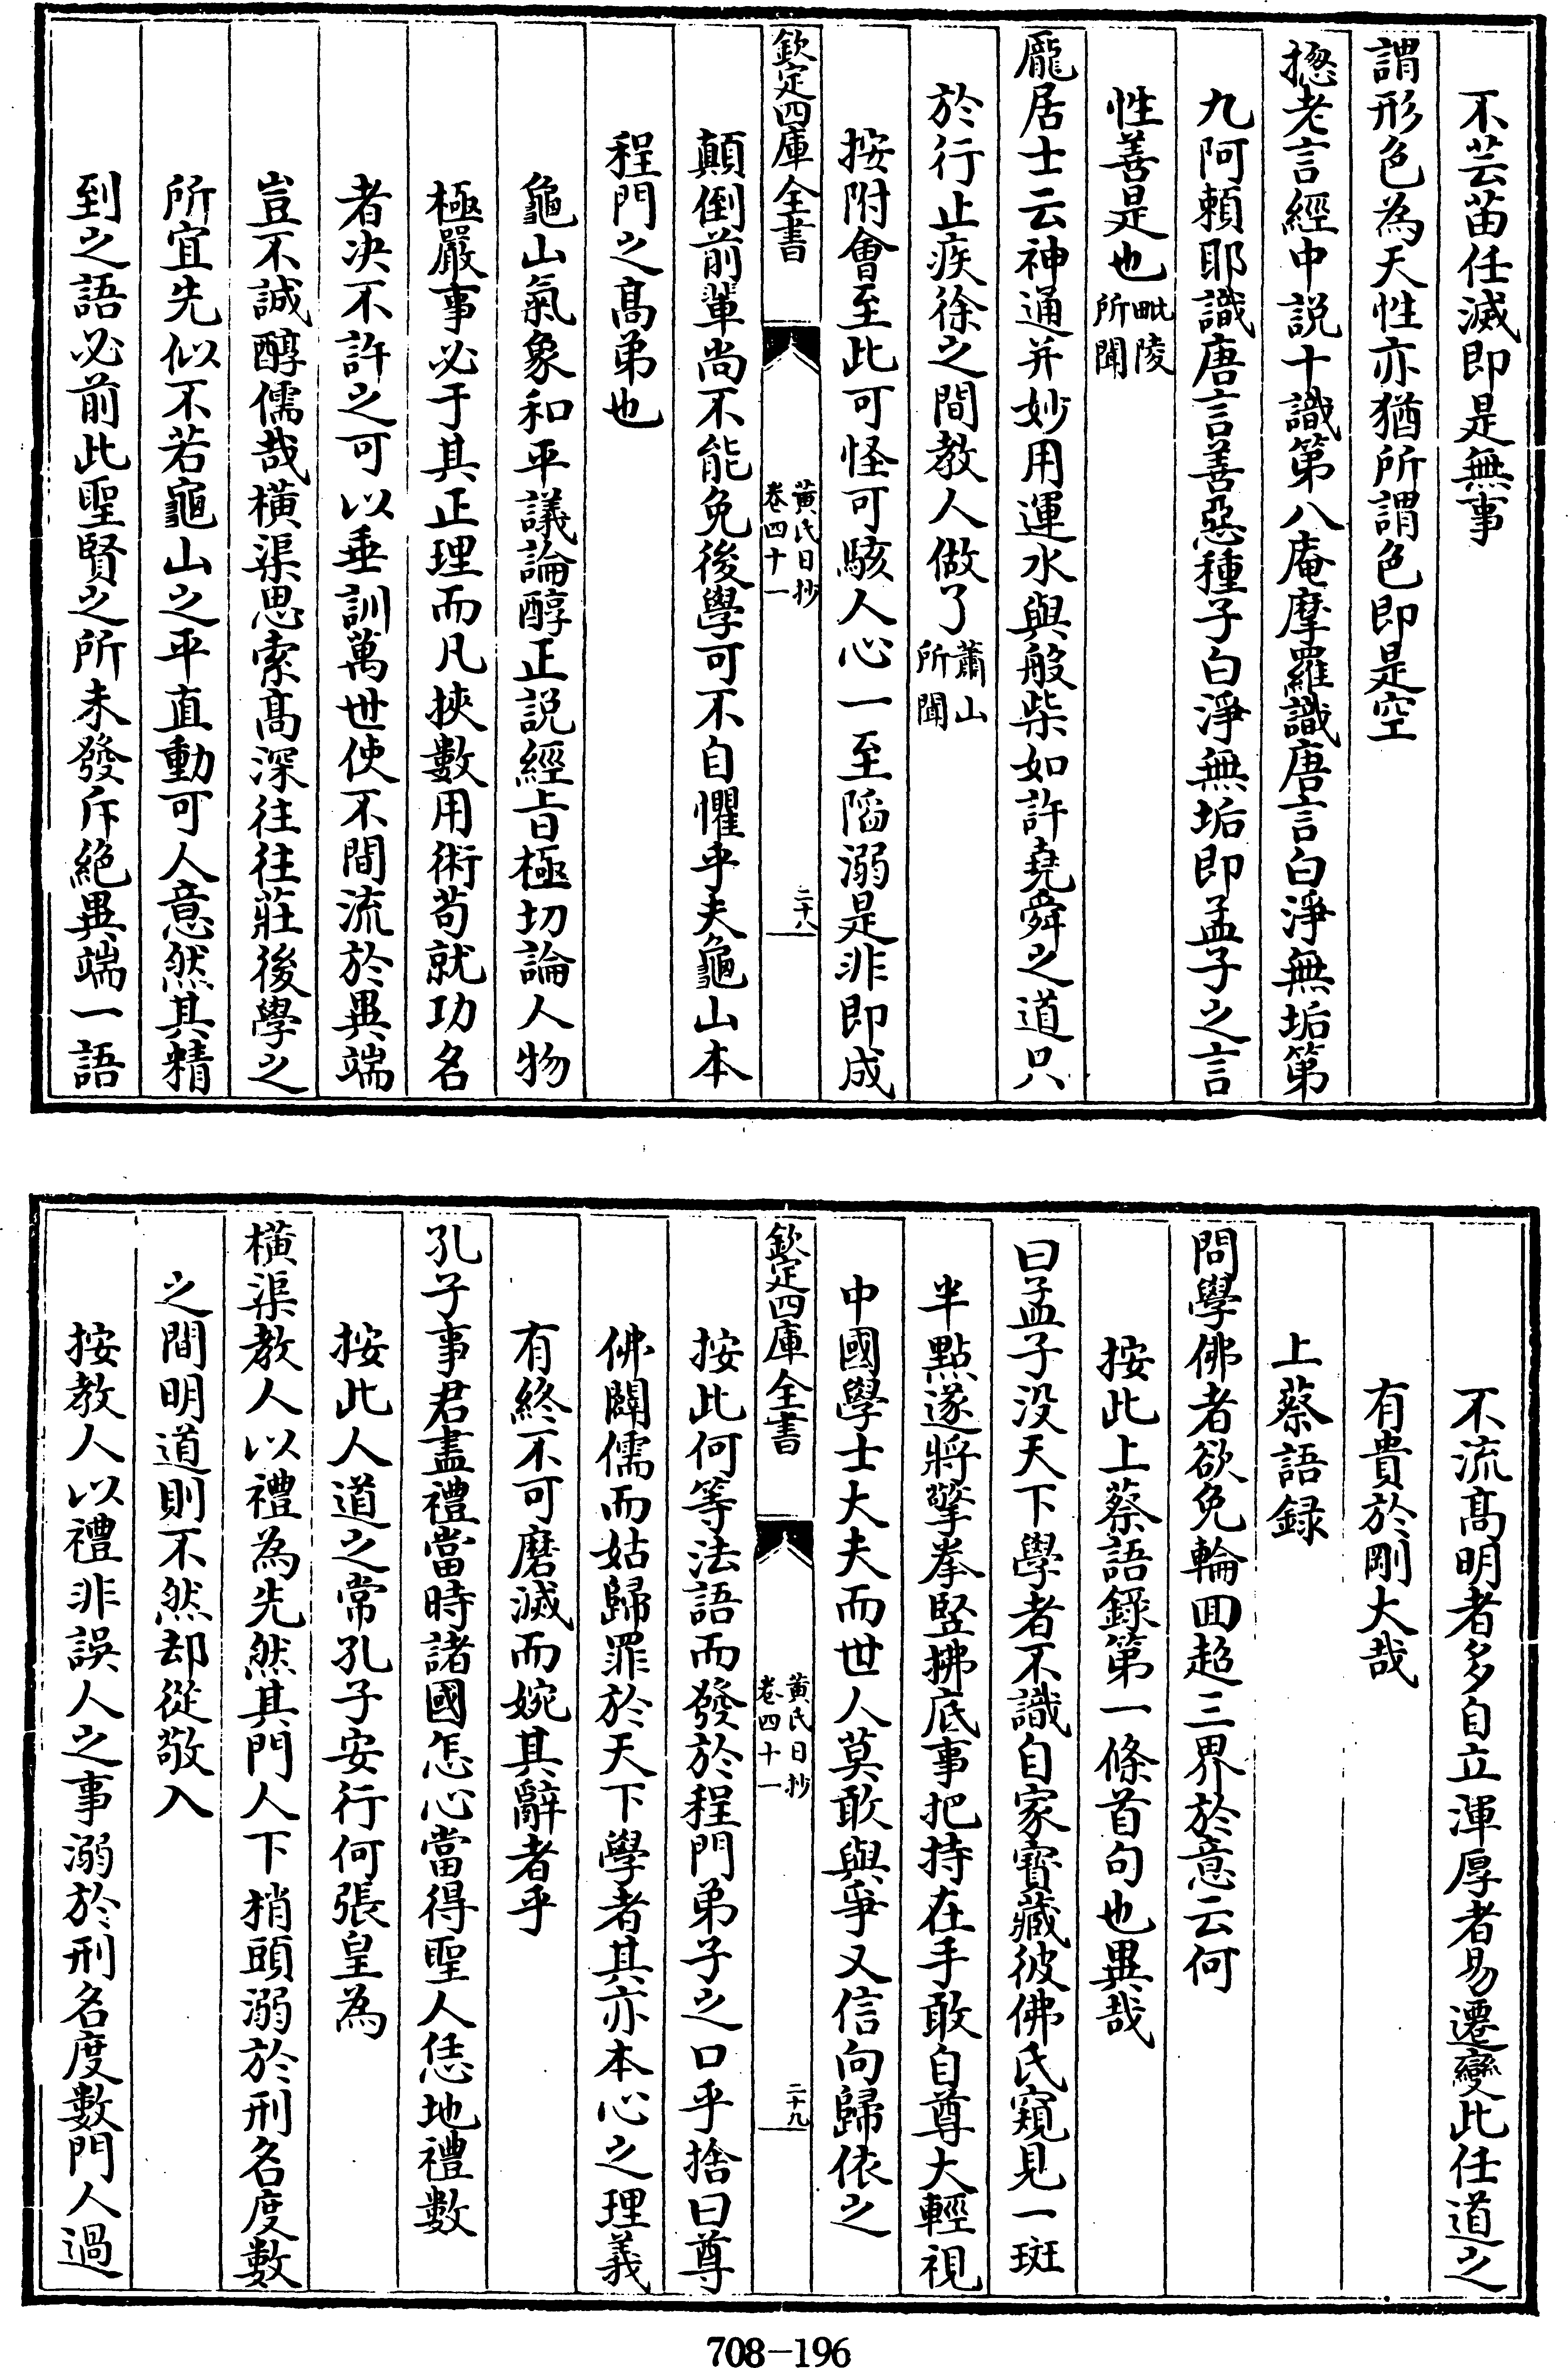 不芸苗任滅即是無事
謂形色為天性亦猶所謂色即是空
揔老言經中説十識第八庵摩羅識唐言白淨無垢第
九阿賴耶識唐言善惡種子白淨無垢即孟子之言
性善是也毗陵所聞
龎居士云神通并妙用運水與般柴如許堯舜之道只
於行止疾徐之間教人做了蕭山所聞
按附會至此可怪可駭人心一至陷溺是非即成
欽定四庫全書 黄氏日抄卷四十一 二十八
顛倒前輩尚不能免後學可不自懼乎夫龜山本
程門之髙弟也
龜山氣象和平議論醇正説經㫖極切論人物
極嚴事必于其正理而凡挾數用術苟就功名
者决不許之可以垂訓萬世使不間流於異端
豈不誠醇儒哉橫渠思索髙深往往莊後學之
所宜先似不若龜山之平直動可人意然其精
到之語必前此聖賢之所未發斥絶異端一語
不流髙明者多自立渾厚者易遷變此任道之
有貴於剛大哉
上蔡語録
問學佛者欲免輪囬超三界於意云何
按此上蔡語錄第一條首句也異哉
曰孟子没天下學者不識自家寳藏彼佛氏窺見一斑
半點遂將擎拳竪拂底事把持在手敢自尊大輕視
中國學士大夫而世人莫敢與爭又信向歸依之
欽定四庫全書 黄氏日抄卷四十一 二十九
按此何等法語而發於程門弟子之口乎捨曰尊
佛闢儒而姑歸罪於天下學者其亦本心之理義
有終不可磨滅而婉其辭者乎
孔子事君盡禮當時諸國怎心當得聖人恁地禮數
按此人道之常孔子安行何張皇為
橫渠教人以禮為先然其門人下梢頭溺於刑名度數
之間明道則不然却從敬入
按教人以禮非誤人之事溺於刑名度數門人過
708-196